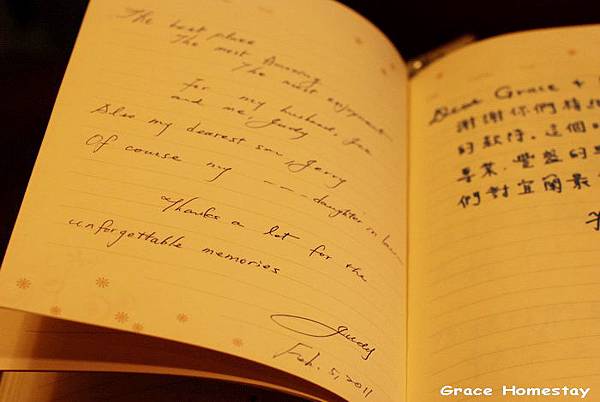 The best place
The most Amazing
The most enjoyment
For my husband, Joe
and me, Judy
Also my dearest son, Jerry
Of course my --- daughter in law
Thanks a lot for the
unforgettable memories
Judy
Feb. 5, 2011
Dear Grace &
謝謝你們精
的款待。這個
專業,豐盛的
們對宜蘭最
Grace Homestay